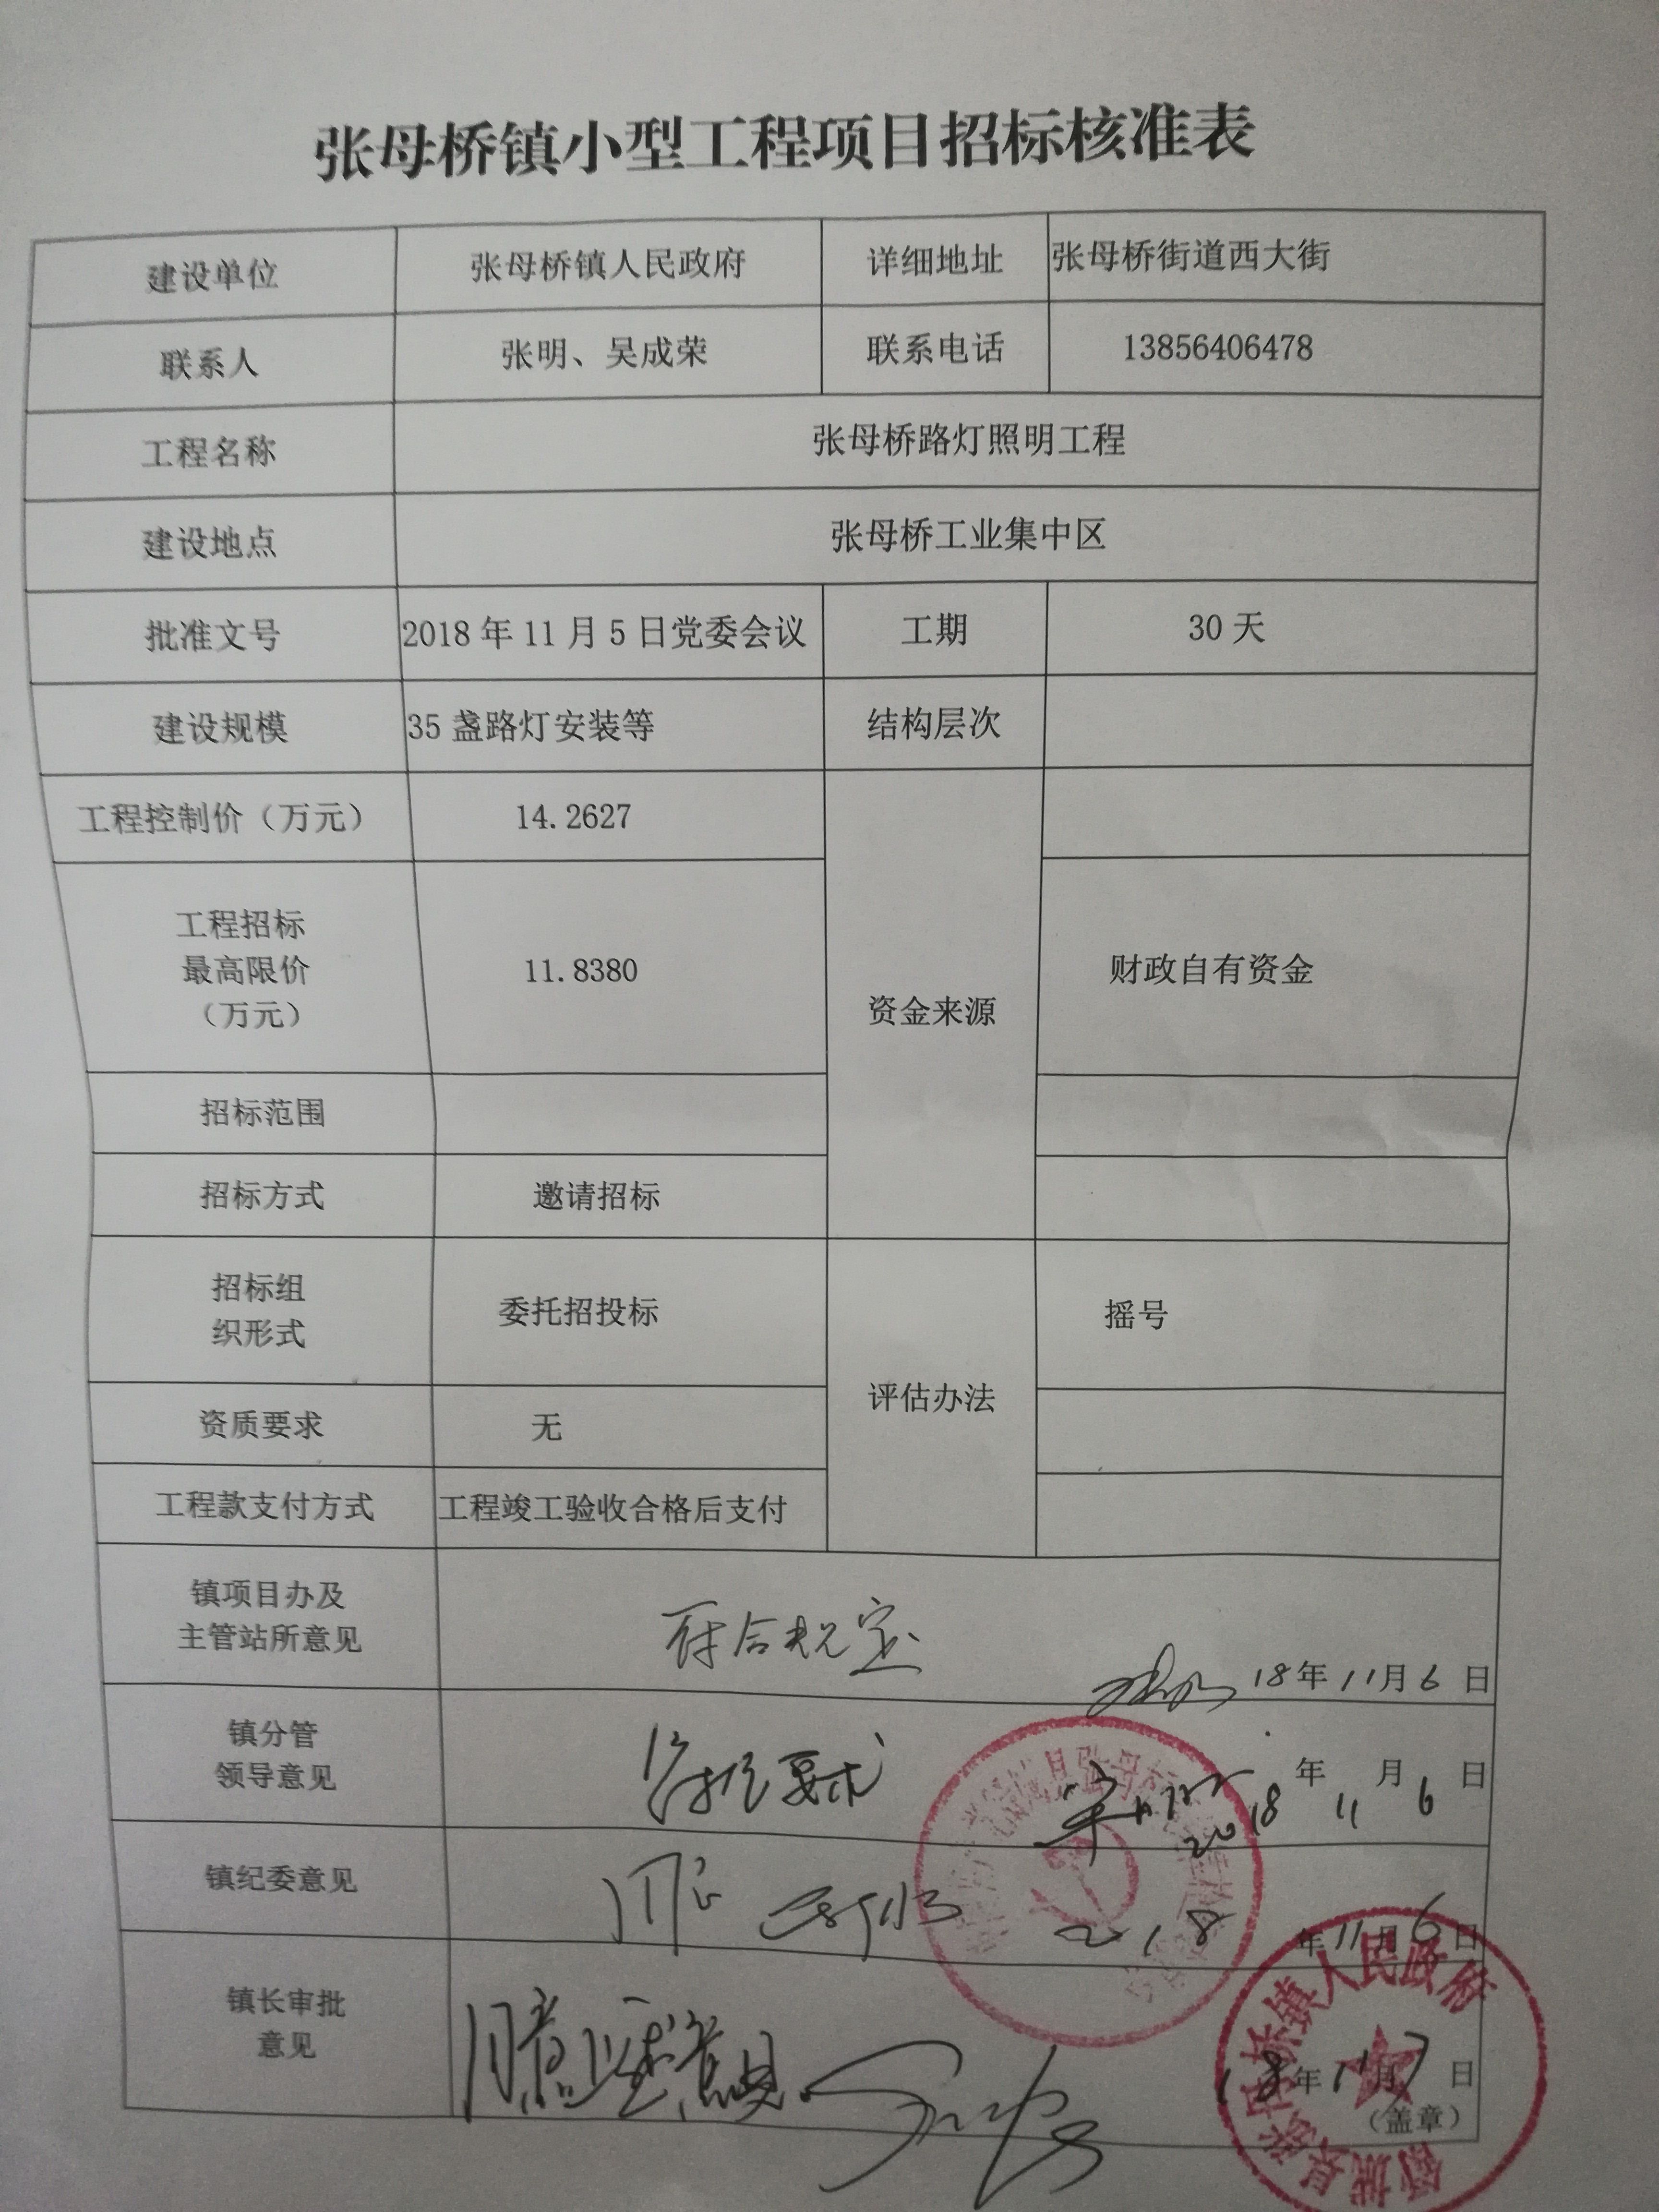 张母桥镇小型工程项目招标核准表
建设单位 张母桥镇人民政府 详细地址 张母桥街道西大街
联系人 张明、吴成荣 联系电话 13856406478
工程名称 张母桥路灯照明工程
建设地点 张母桥工业集中区
批准文号 2018年11月5日党委会议 工期 30天
建设规模 35盏路灯安装等 结构层次
工程控制价（万元） 14.2627
工程招标
最高限价
（万元）
11.8380
资金来源
财政自有资金
招标范围
招标方式 邀请招标
招标组
织形式
委托招投标
评估办法
摇号
资质要求 无
工程款支付方式 工程竣工验收合格后支付
镇项目办及
主管站所意见
符合规定
18年11月6日
镇分管
领导意见
符合要求
年 月 日
2018 11 6
镇纪委意见
同意
2018年11月6日
镇长审批
意见
同意上述意见
18年11月7日
（盖章）
舒城县张母桥镇人民政府